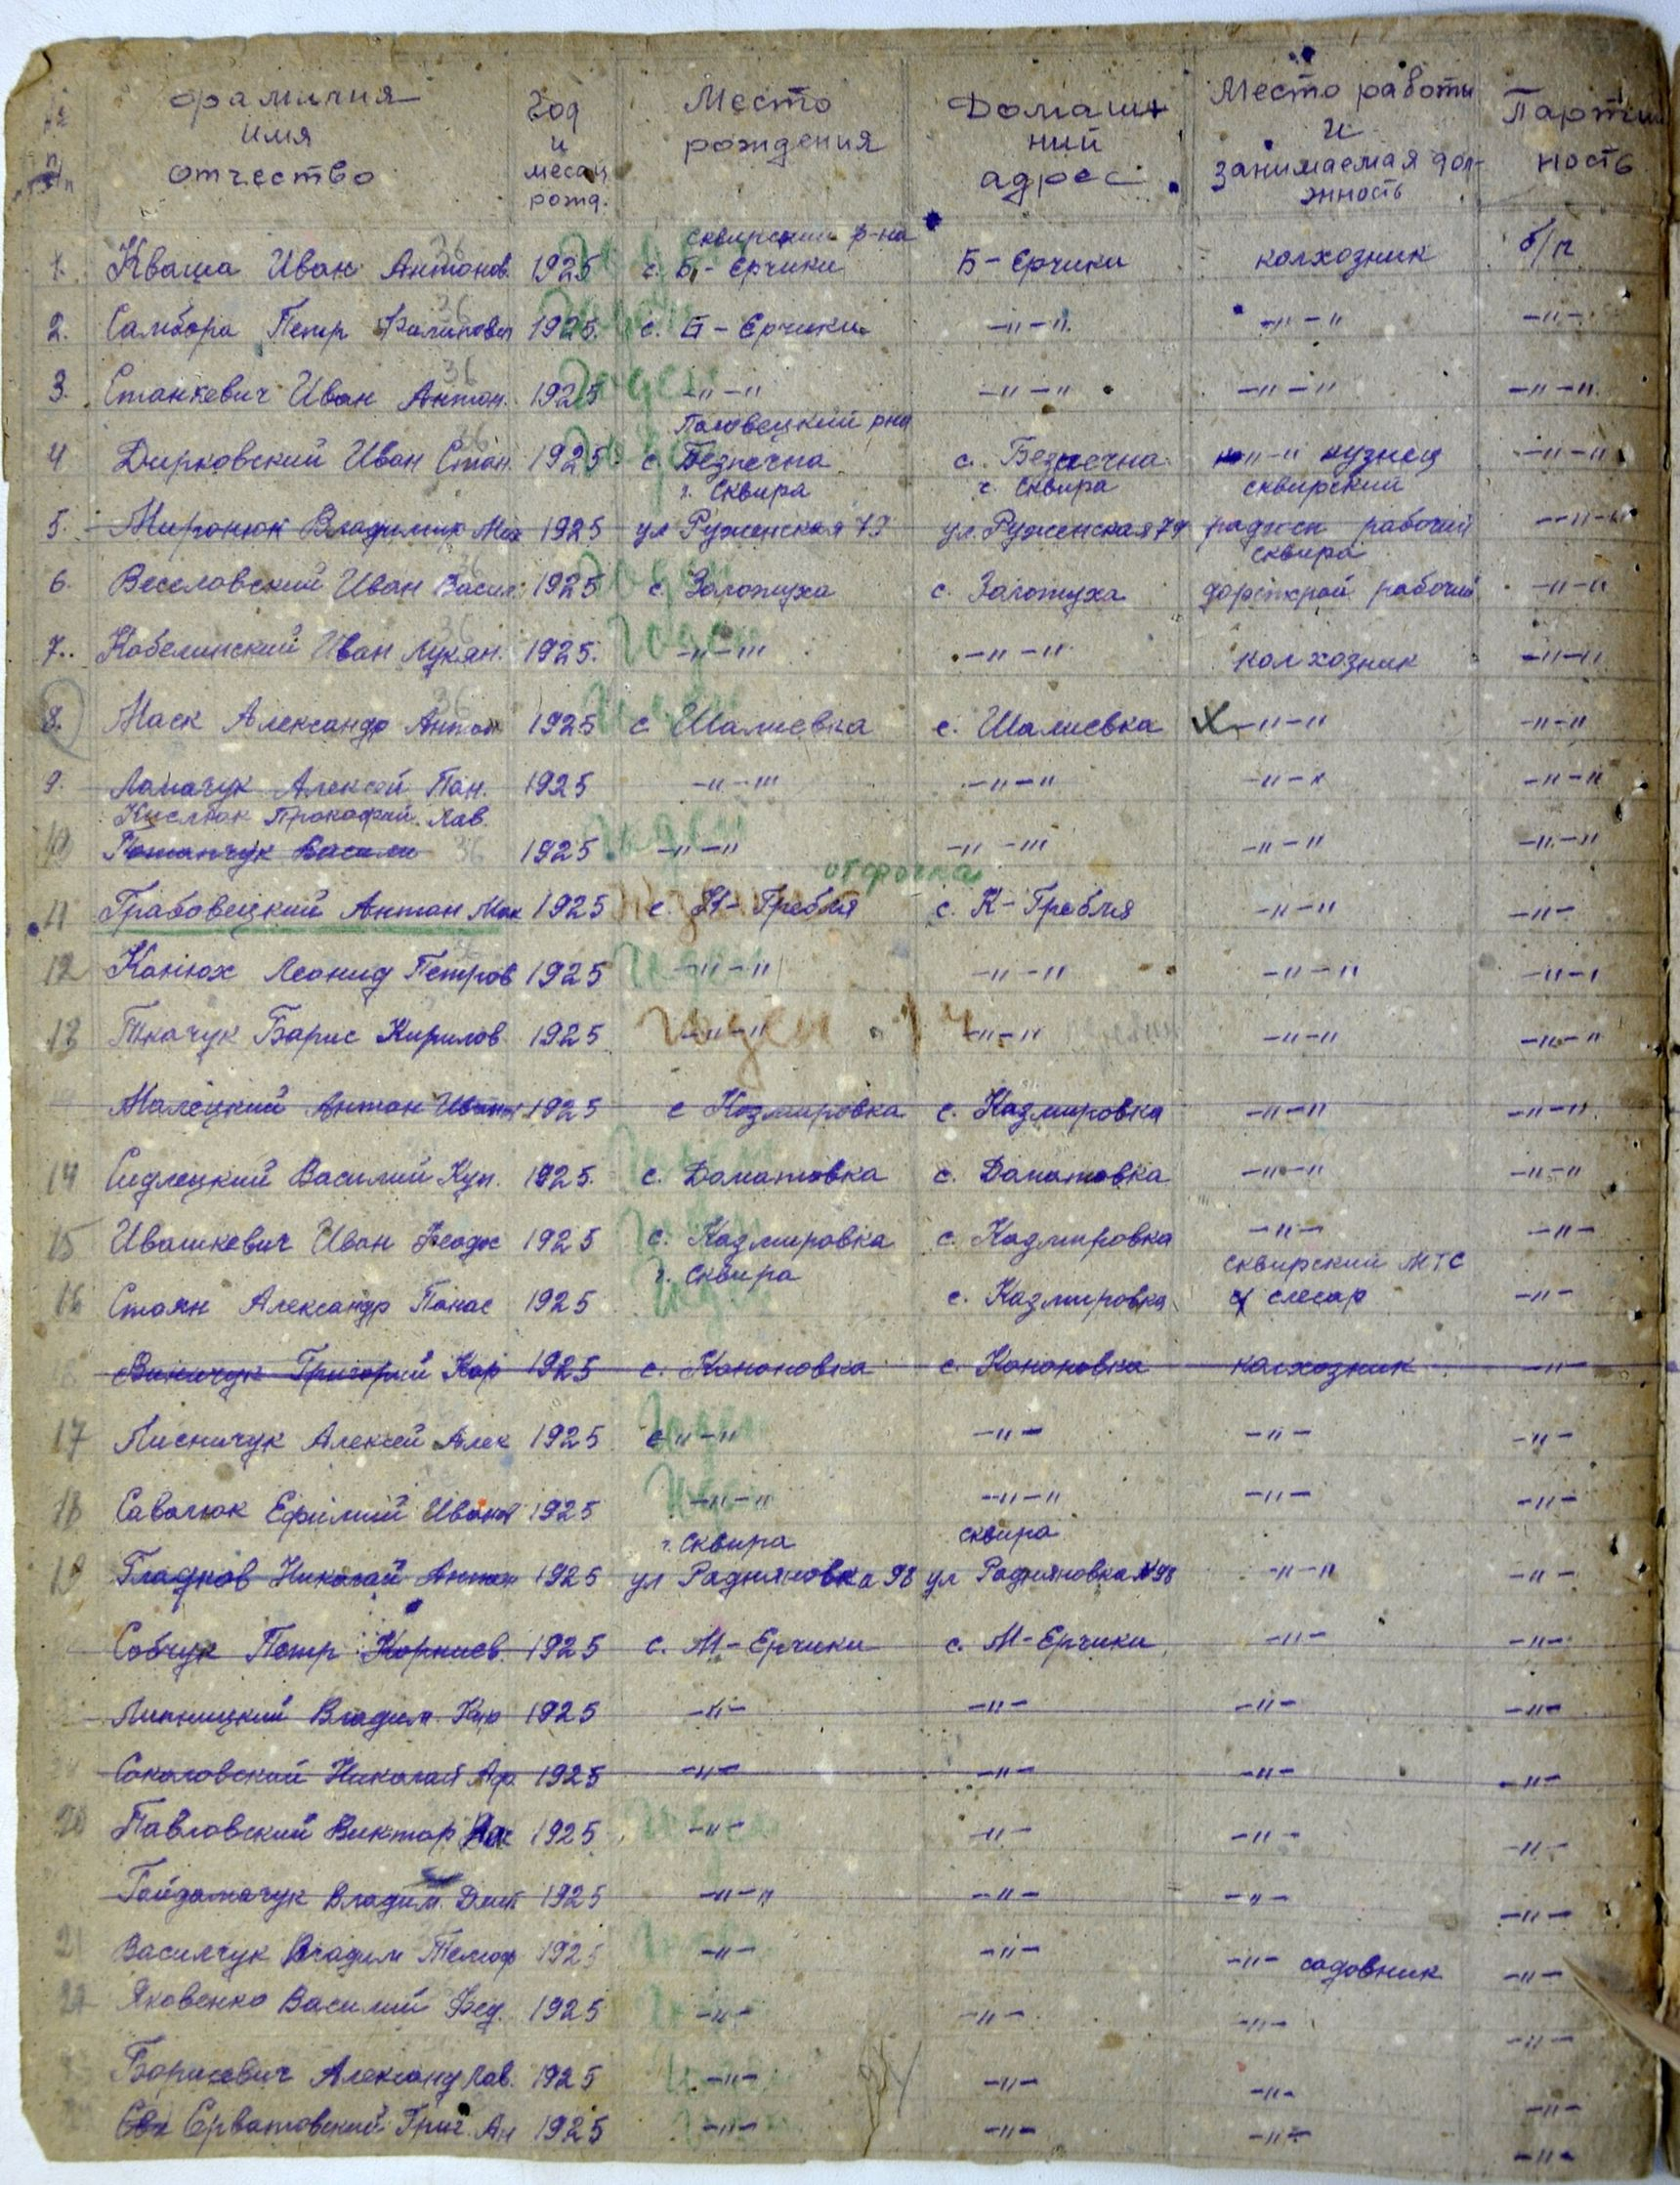 № п/п фамилия имя отчество Год и месяц рожд. Место рождения Домашний адрес Место работы и занимаемая должность
Сквирский р-на
1. Кваша Иван Антонов. 1925 с. Б-Ерчики Б-Ерчики колхозник б/п
2. Самбора Петр Филипович 1925. с. Б-Ерчики -"-". -"-" -"-.
3. Станкевич Иван Антон. 1925 -"-" -"-" -"-" -"-".
рна
4 Дирковский Иван Стан. 1925 с. Безпечна с. Безпечна -"-" кузнец -"-"
г. Сквира г. Сквира сквирский
5. Миронюк Владимир Мих 1925 ул Руженская 79 ул. Руженская 79 рабочий -"-"
сквира
6. Веселовский Иван Васил. 1925 с. с. рабочий -"-"
7. Кобелинский Иван Лукян. 1925. -"-"' -"-" колхозник -"-"
8. Маск Александр Антон 1925 с Шалиевка с. Шалиевка -"-" -"-"
9. Алексей Пан. 1925 -"-"' -"-" -"-" -"-"
Кислюк Прокофий Лав.
10 Потапчук Васили 36 1925. -"-" -"-"' -"-" -"-"
отсрочка
11 Грабовецкий Антон Мак 1925 с. К-Гребля с. К-Гребля -"-" -"-
12 Канюх Леонид Петров 1925 -"-" -"-" -"-" -"-"
13 Ткачук Борис Кирилов 1925 годен -"-" -"-" -"-" -"-"
Малецкий Антон Иван 1925 с Казмировка с. Казмировка -"-" -"-".
14 Сидлецкий Василий Куп. 1925. с. Доматовка с. Доматовка -"-" -"-"
15 Ивашкевич Иван Феодос 1925 с. Казмировка с. Казмировка -"- -"-
г. Сквира сквирский МТС
16 Стоян Александр Панас 1925 с. Казмировка слесар -"-
Григорий Кар 1925 с. Кононовка с. Кононовка колхозник -"-
17 Лисничук Алексей Алек 1925 с -"-" -"- -"- -"-
18 Саволюк Ефимий Иванов 1925 -"-" -"-" -"- -"-
г. Сквира сквира
19 Гладков Николай Антон 1925 ул Радняновка 98 ул Радняновка №98 -"-" -"-
Собчук Петр Корниев. 1925 с. М-Ерчики с. М-Ерчики -"- -"-
Липницкий Владим. Кир 1925 -"- -"- -"- -"-
Соколовский Николай Аф. 1925 -"- -"- -"- -"-
20 Павловский Виктор Вас 1925. -"- -"- -"- -"-
Гайдамачук Владим. Дмит 1925 -"-" -"- -"- -"-
21 Василчук Владим Тимоф 1925 -"- -"- -"- садовник -"-
22 Яковенко Василий Фед. 1925 -"- -"- -"- -"-
Борисевич Александ Лав. 1925 -"- -"- -"- -"-
Ерватовский Григ. Ан 1925 -"- -"- -"- -"-